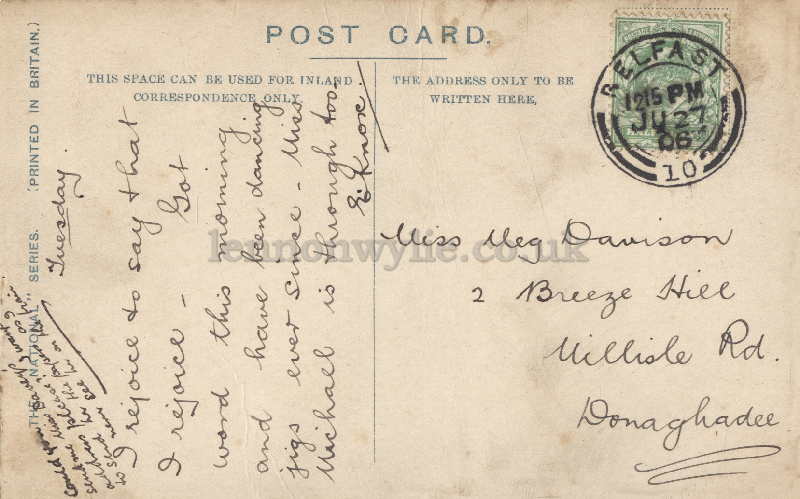 POST CARD.
THIS SPACE CAN BE USED FOR INLAND
CORRESPONDENCE ONLY
THE ADDRESS ONLY TO BE
WRITTEN HERE,
THE "NATIONAL" SERIES. (PRINTED IN BRITAIN.)
BELFAST
1215 PM
JU 27
06
10
Tuesday.
I rejoice to say that
I rejoice - Got
word this morning
and have been dancing
jigs ever since - Miss
Michael is through too.
E. Knox.
Miss Meg Davison
2 Breeze Hill
Millisle Rd.
Donaghadee
lennonwylie.co.uk